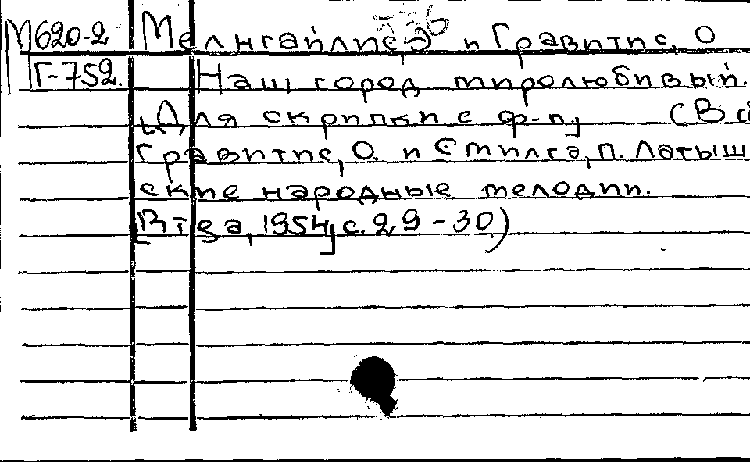 М620-2 Мелнгайлис, Э и Гравитис, О
Г-752. Наш город миролюбивый.
[Для скрипки с ф-п] (В сб
Гравитис, О. и Стилга, П. Латыш
ские народные мелодии.
[Рига, 1954] с. 29-30)